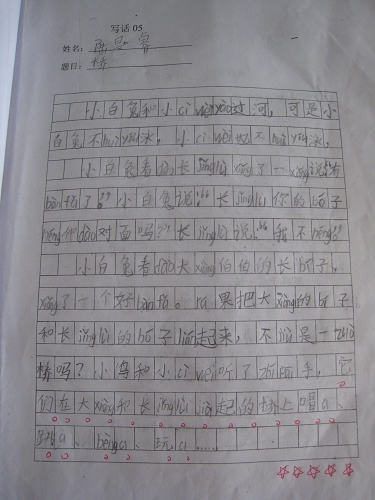 写话 05
姓名：
题目：桥
小白兔和小cì wèi yào过河，可是小
白兔不huì yóu泳，小cì wèi也不huì yóu泳，
小白兔看dào长jǐng lù xiǎng了一xiǎng说：“有
bàn fǎ了！”小白兔说：“长jǐng lù你的bó子
néng伸dào对面吗？”长jǐng lù说：“我不néng！”
小白兔看dào大xiàng伯伯的长bí子，
xiǎng了一个好bàn fǎ。rú果把大xiàng的bí子
和长jǐng lù的bó子lián起来，不jiù是一zuò
桥吗？小鸟和小cì wèi听了zhí pāi手，它
们在大xiàng和长jǐng lù lián起的桥上唱a、
tiào a、bèng a、玩a……